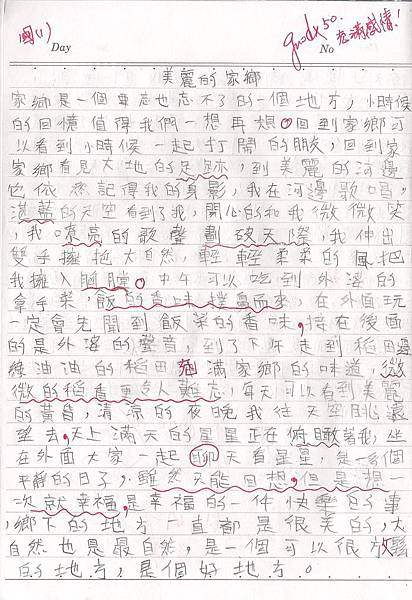 國(1)
Day
good x50.
充滿感情！
No
美麗的家鄉
家鄉是一個要忘也忘不了的一個地方，小時候
的回憶值得我們一想再想。回到家鄉可
以看到小時候一起打鬧的朋友，回到家
家鄉看見大地的足跡，到美麗的河邊
也依然記得我的身影，我在河邊歌唱。
湛藍的天空看到了我，開心的和我微微笑
，我嘹亮的歌聲劃破天際，我伸出
雙手擁抱大自然，輕輕柔柔的風把
我擁入胸膛。中午可以吃到外婆的
拿手菜，飯的香味撲鼻而來，在外面玩
一定會先聞到飯菜的香味，接在後面
的是外婆的聲音，到了下午走到稻田邊
綠油油的稻田充滿家鄉的味道，微
微的稻香更令人難忘，每天可以看到美麗
的黃昏，清涼的夜晚我往天空眺遠
望去，天上滿天的星星正在俯瞰著我，坐
在外面大家一起仰天看星星，是一個
平靜的日子，雖然只能回想，但是想一
次就幸福，是幸福的一件快樂的事
，鄉下的地方一直都是很美的，大
自然也是最自然，是一個可以很放鬆
的地方，是個好地方。